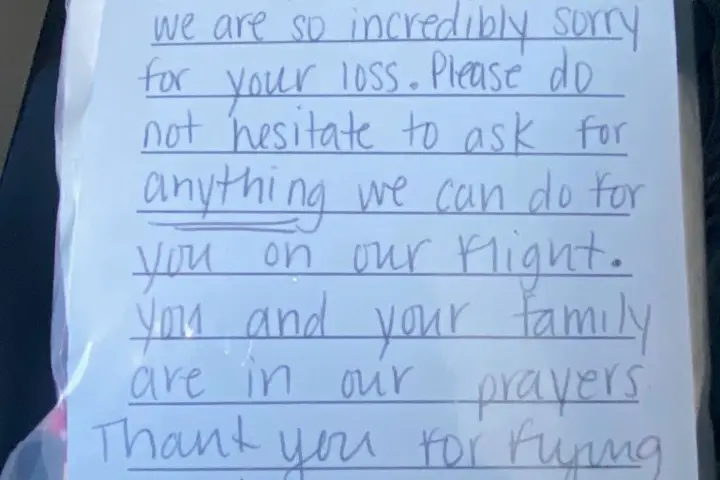 we are so incredibly sorry
for your loss. Please do
not hesitate to ask for
anything we can do for
you on our flight.
you and your family
are in our prayers
Thank you for flying